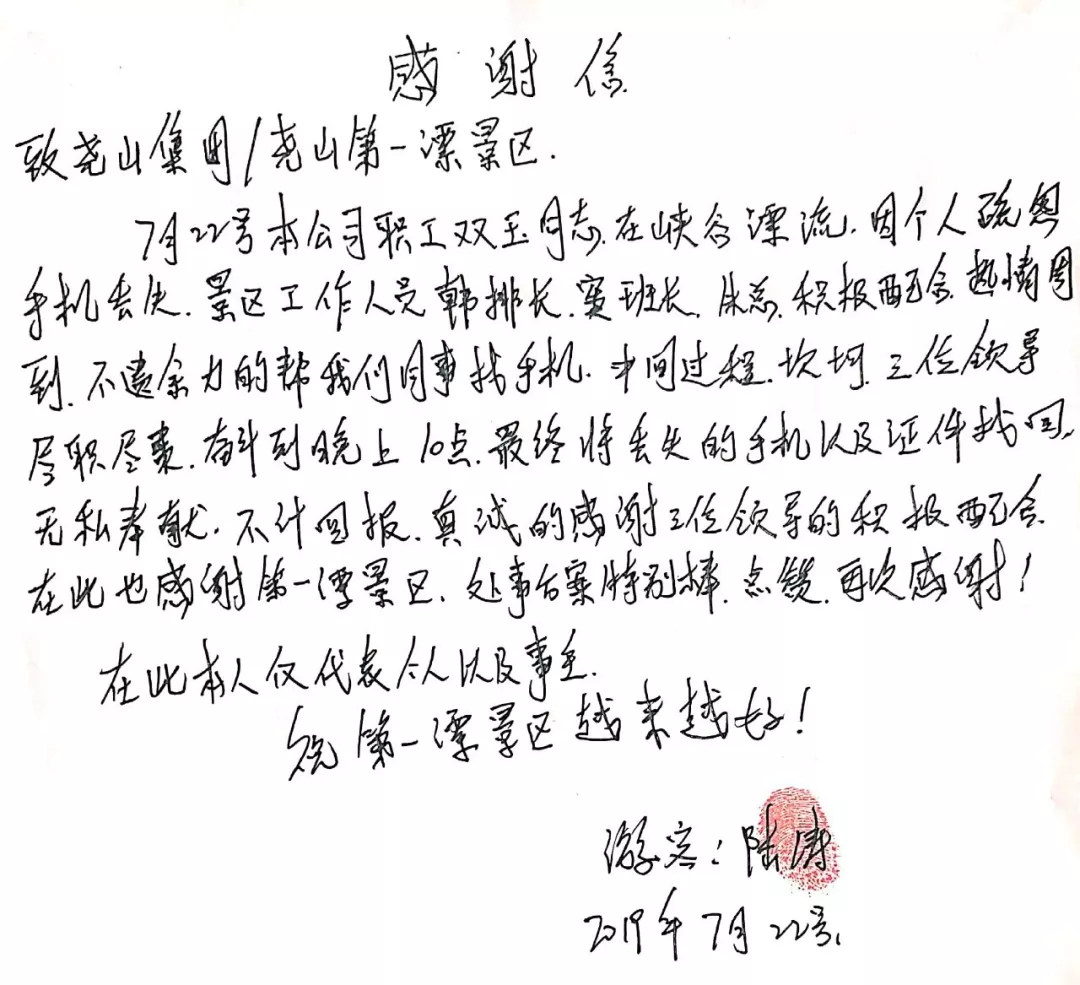 感谢信
致尧山集团/尧山第一漂景区.
7月22号本公司职工双玉同志,在峡谷漂流.因个人疏忽
手机丢失.景区工作人员韩排长.班长.积极配合.热情周
到.不遗余力的帮我们同事找手机.中间过程.坎坷.三位领导
尽职尽责.奋斗到晚上10点.最终将丢失的手机以及证件找回.
无私奉献.不计回报.真诚的感谢三位领导的积极配合.
在此也感谢第一漂景区.处事方案特别棒.点赞.再次感谢!
在此本人仅代表个人以及事主.
祝第一漂景区越来越好!
游客:陆涛
2019年7月22号.